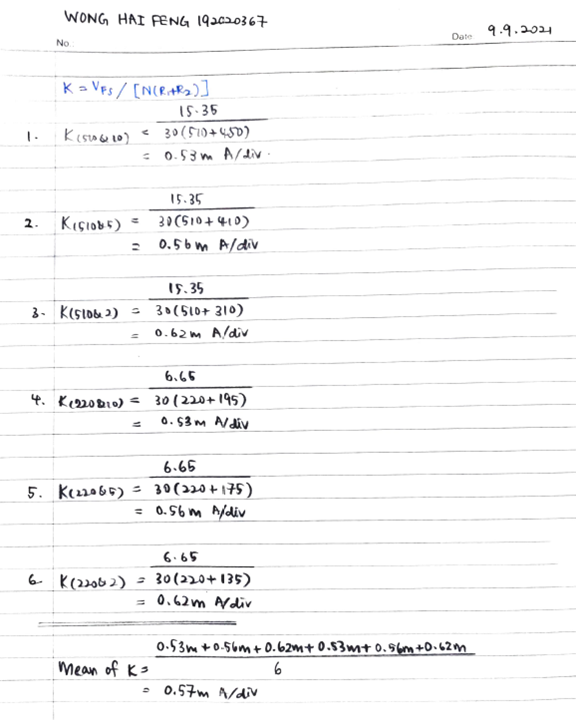 WONG HAI FENG 192020367
No.
Date 9.9.2021
K = VFS / [N(R1+R2)]
15.35
1. K(510&10) = 30(510+450)
= 0.53m A/div.
15.35
2. K(510&5) = 30(510+410)
= 0.56m A/div
15.35
3. K(510&2) = 30(510+310)
= 0.62m A/div
6.65
4. K(220&10) = 30(220+195)
= 0.53m A/div
6.65
5. K(220&5) = 30(220+175)
= 0.56m A/div
6.65
6. K(220&2) = 30(220+135)
= 0.62m A/div
0.53m + 0.56m + 0.62m + 0.53m + 0.56m + 0.62m
Mean of K = 6
= 0.57m A/div